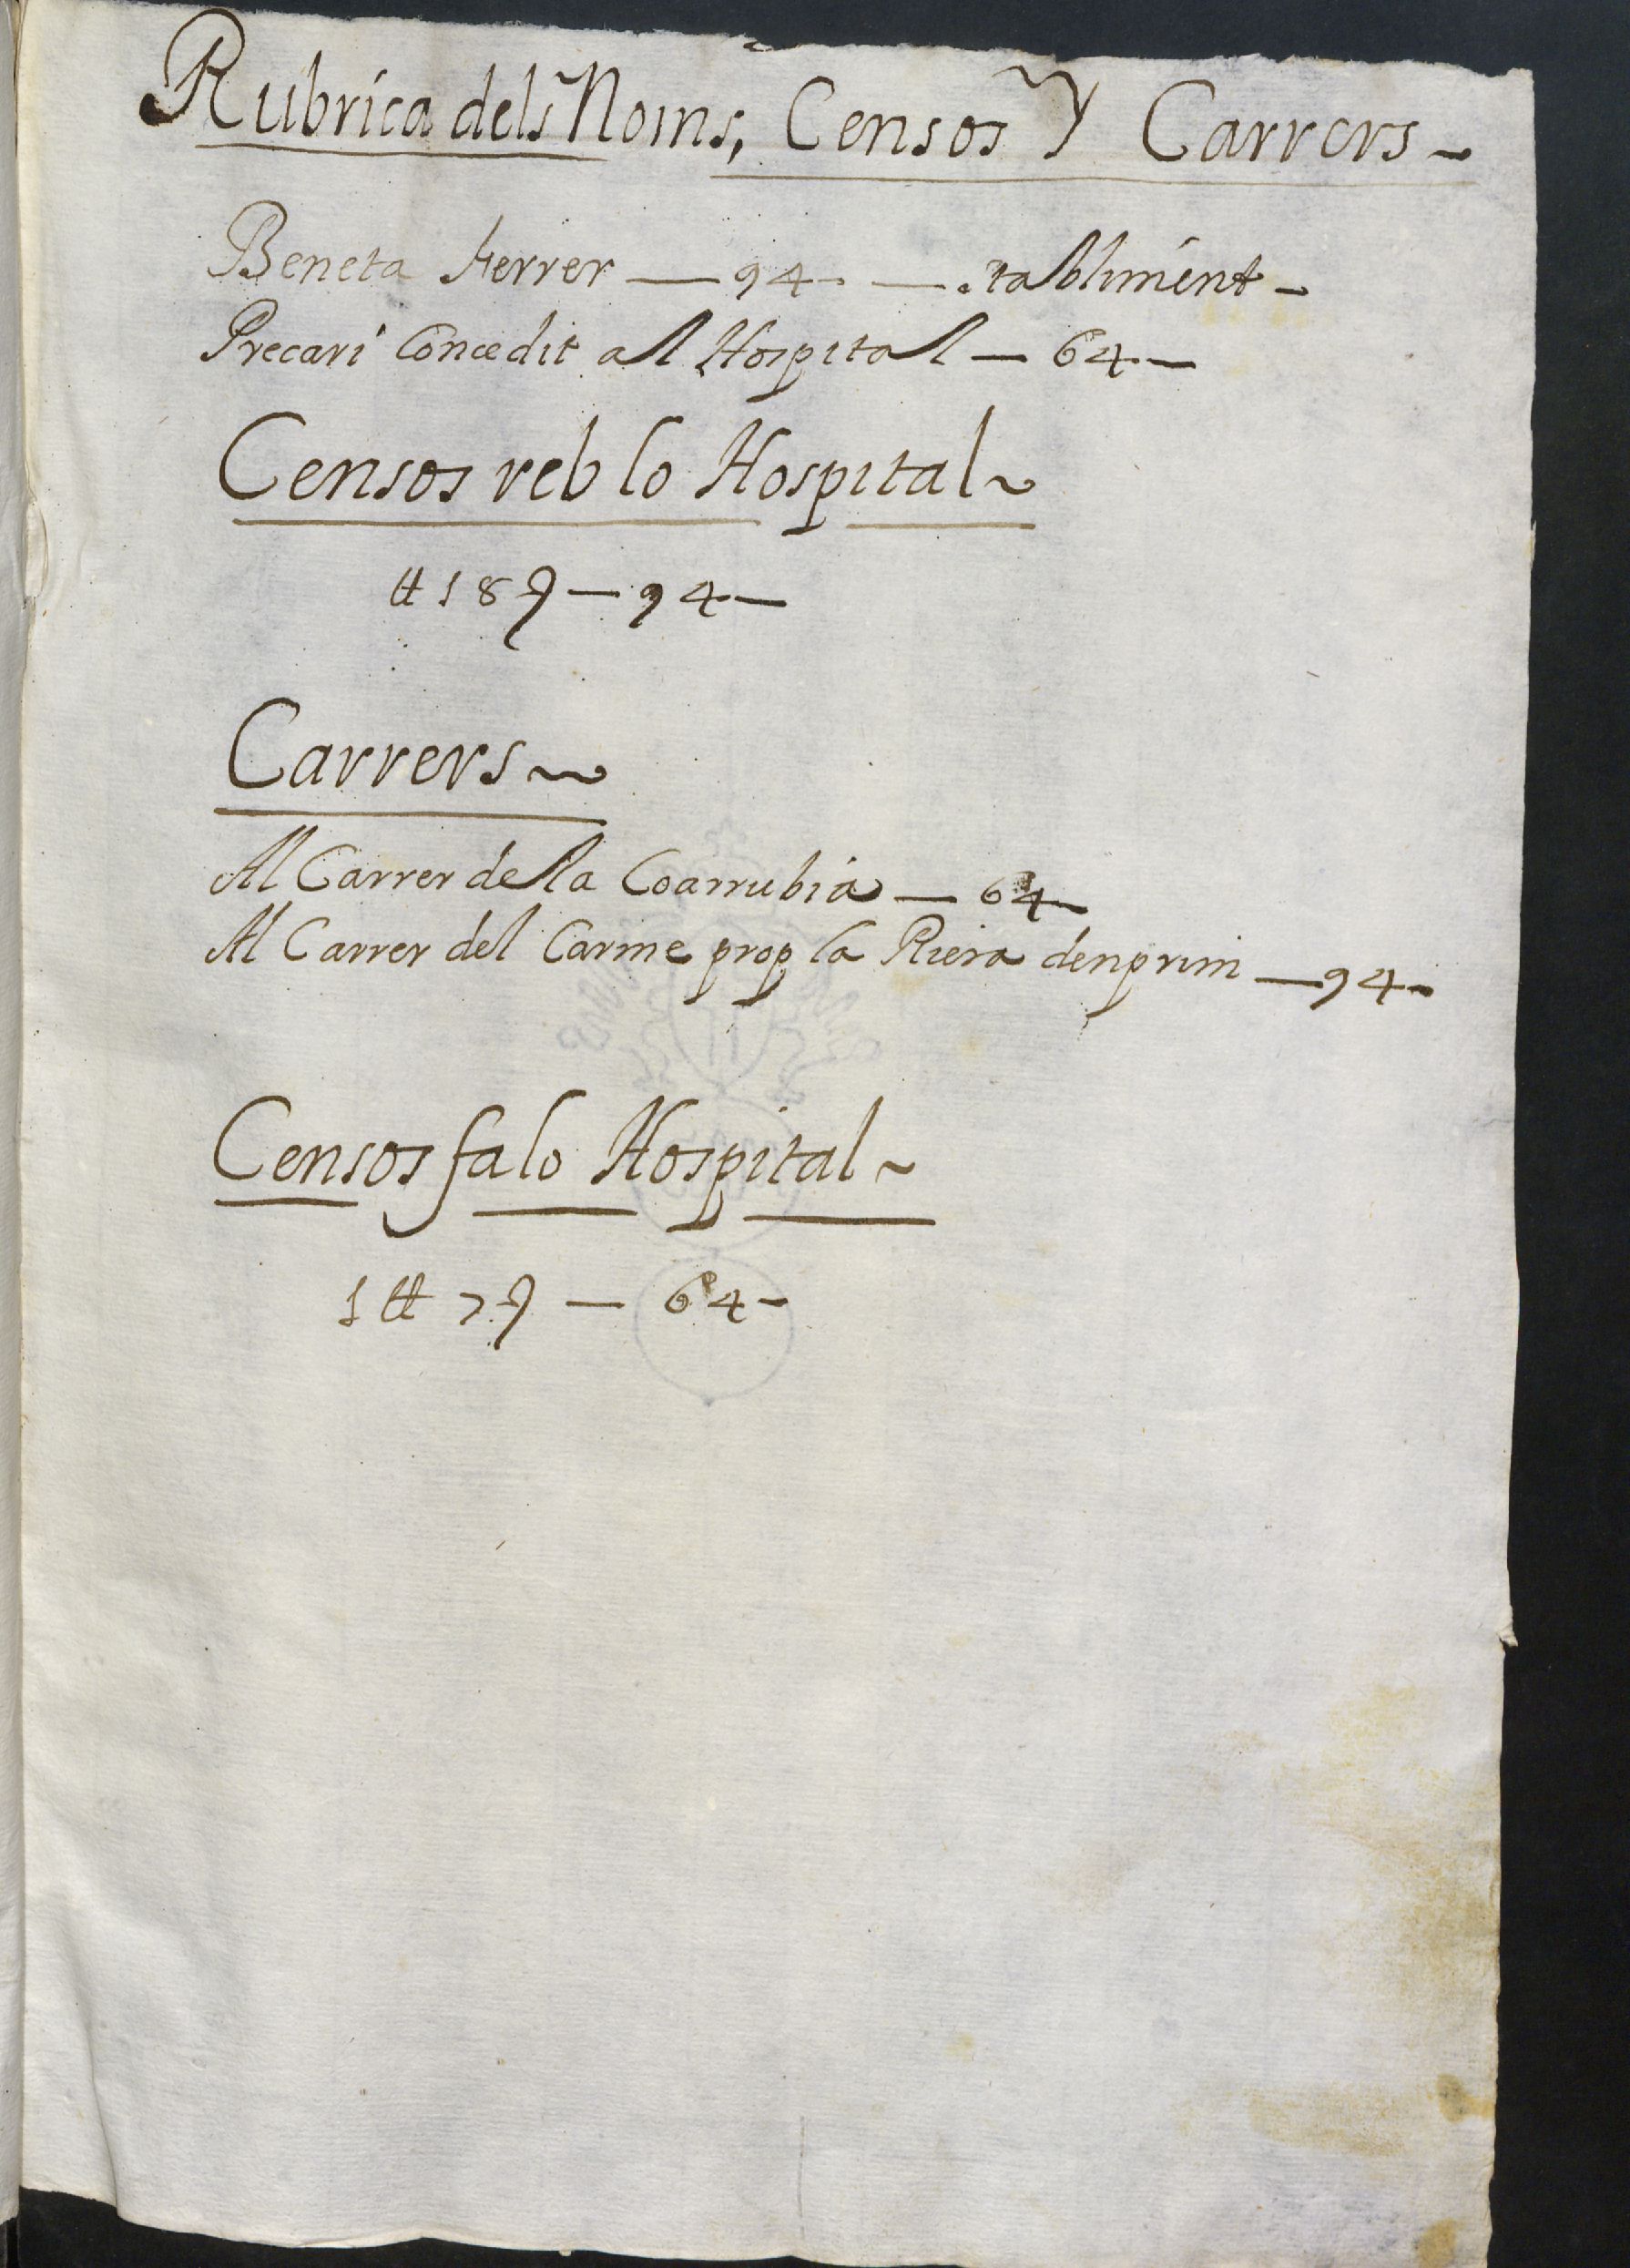 Rubrica dels Noms, Censos Y Carrers ~
Beneta Ferrer — 94 — . tabliment -
Precari Concedit al Hospital — 64 —
Censos reb lo Hospital ~
₶ 18 ʃ — 94 —
Carrers ~
Al Carrer de la Coarrubia — 64 —
Al Carrer del Carme prop la Riera denprim — 94 -
Censos fa lo Hospital ~
1 ₶ 7 ʃ — 64 -